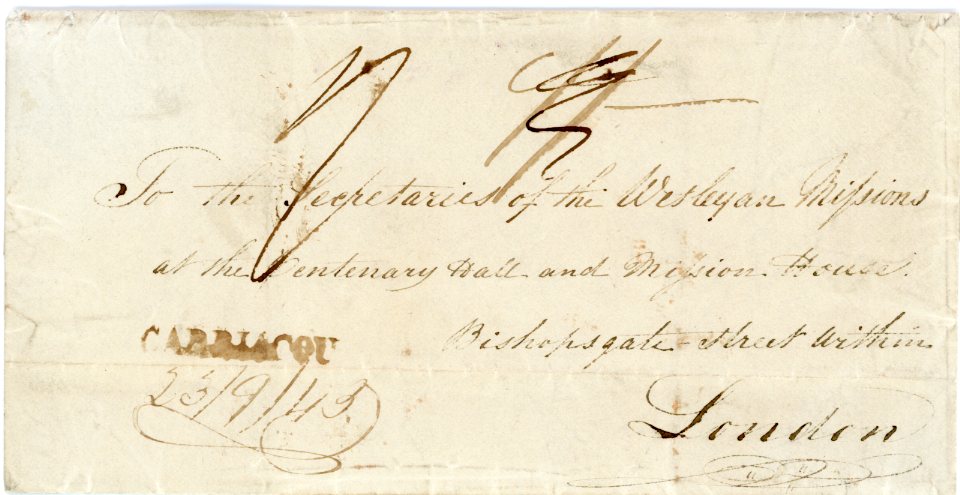 To the Secretaries of the Wesleyan Missions
at the Centenary Hall and Mission House
Bishopsgate Street Within
CARRIACOU
23/9/43.
London